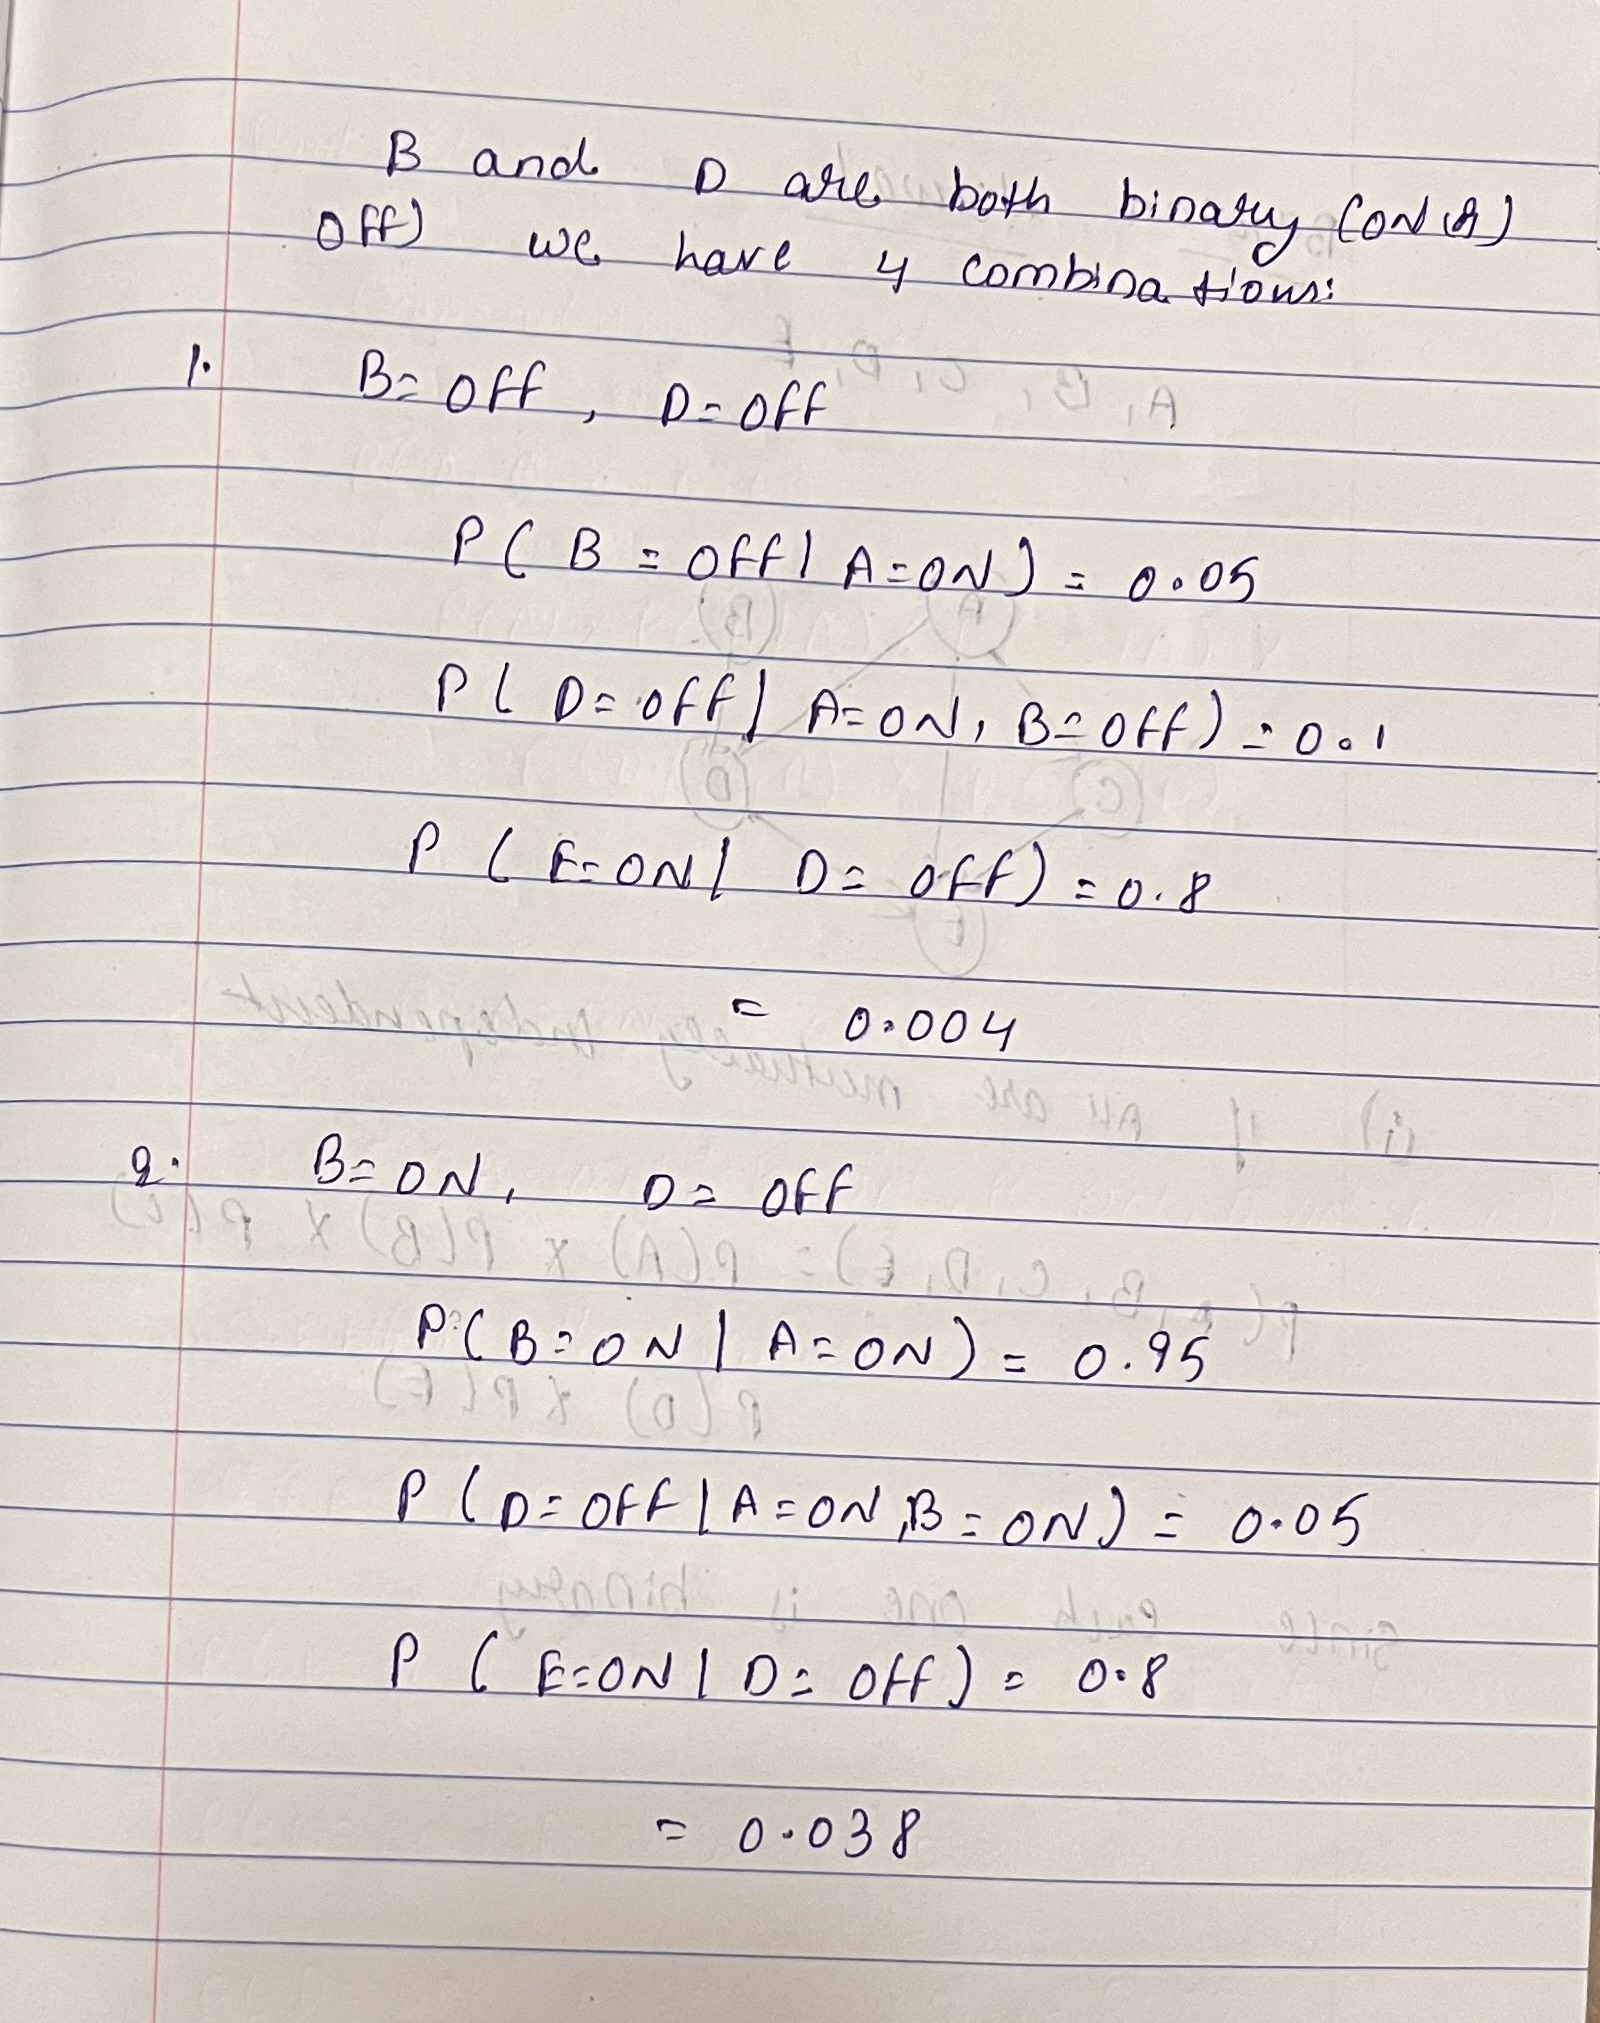 B and D are both binary (ON or)
OFF) we have 4 combinations:
1. B = OFF, D = OFF
P( B = OFF | A = ON ) = 0.05
P( D = OFF | A = ON, B = OFF) = 0.1
P ( E = ON | D = OFF) = 0.8
= 0.004
2. B = ON, D = OFF
P( B = ON | A = ON) = 0.95
P ( D = OFF | A = ON, B = ON) = 0.05
P ( E = ON | D = OFF) = 0.8
= 0.038